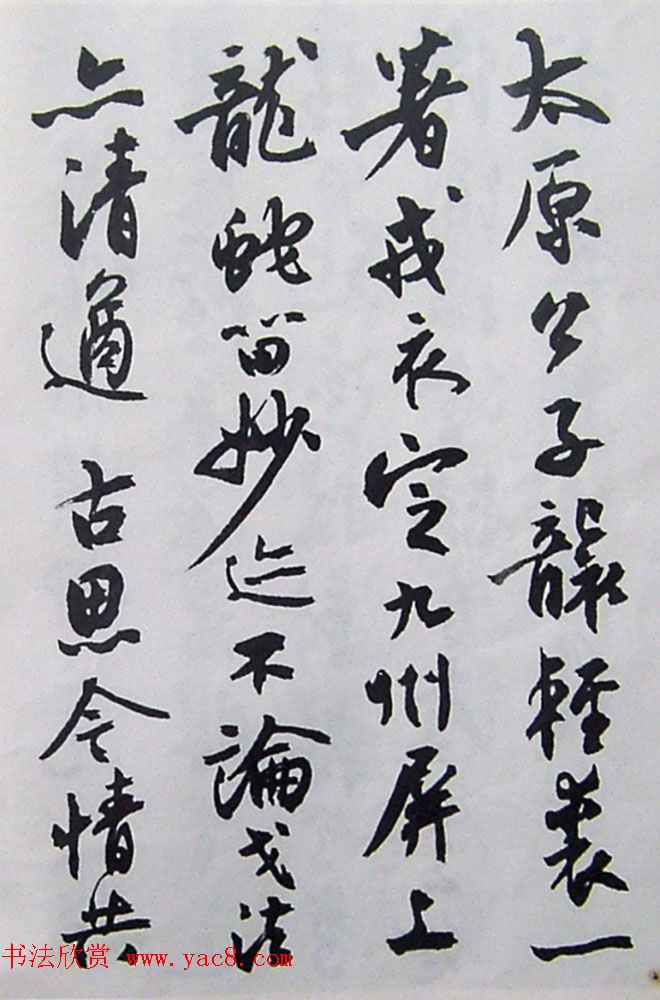 太原公子襲輕裘一
著戎衣定九州屏上
龍蛇留妙迹不論戈法
亦清遒 古思今情共
书法欣赏 www.yac8.com